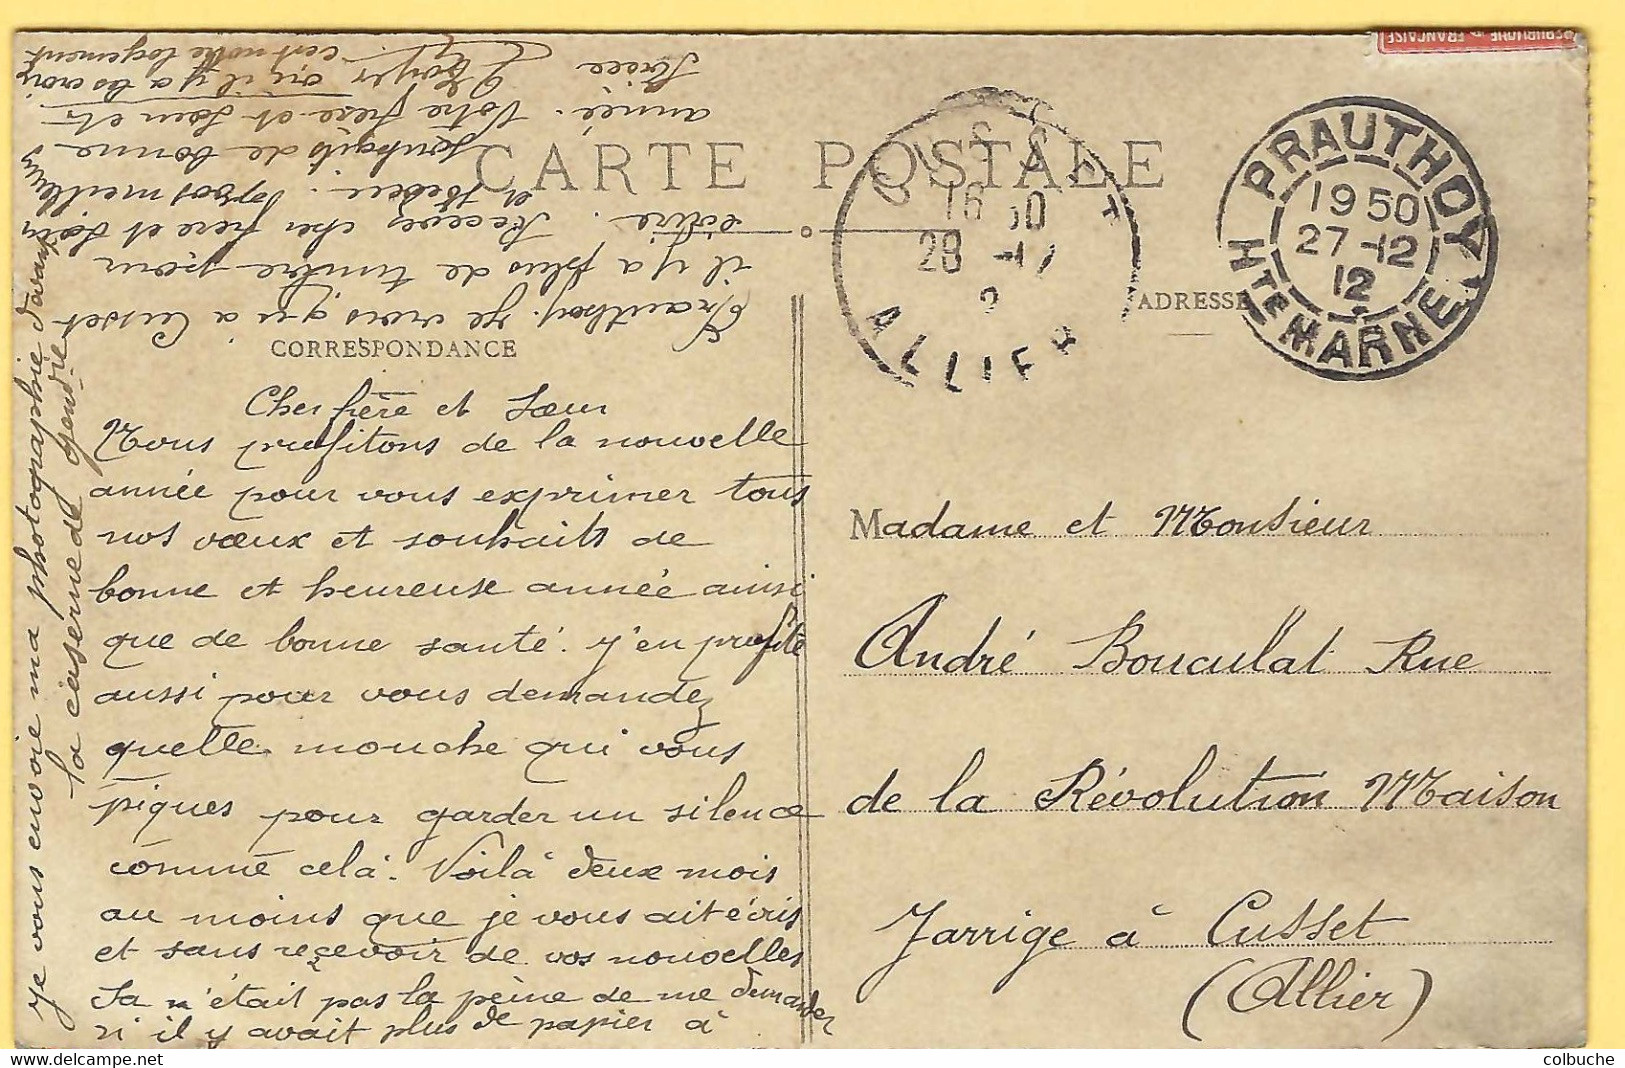 CARTE POSTALE
CORRESPONDANCE
ADRESSE
REPUBLIQUE FRANÇAISE
PRAUTHOY
1950
27-12
12
HTE MARNE
CUSSET
16 30
28 -12
ALLIER
Cher frère et Sœur
Nous profitons de la nouvelle
année pour vous exprimer tous
nos vœux et souhaits de
bonne et heureuse année ainsi
que de bonne santé. J'en profite
aussi pour vous demandez
quelle mouche qui vous
piques pour garder un silence
comme celà. Voilà deux mois
au moins que je vous ait écris
et sans recevoir de vos nouvelles
Sa n'était pas la peine de me demander
si il y avait plus de papier à
Prauthoy. Je crois qu'a Cusset
il y a plus de timbre pour
écrire. Recevez cher frère et Sœur
et Bébée. nos meilleurs
souhaits de bonne
année. Votre frère et Sœur et
Nièce
où il y a les croix
c'est notre logement
Je vous envoie ma photographie devant
la caserne de gendrie
Madame et Monsieur
André Bouculat Rue
de la Révolution Maison
Jarrige à Cusset
(Allier)
colbuche